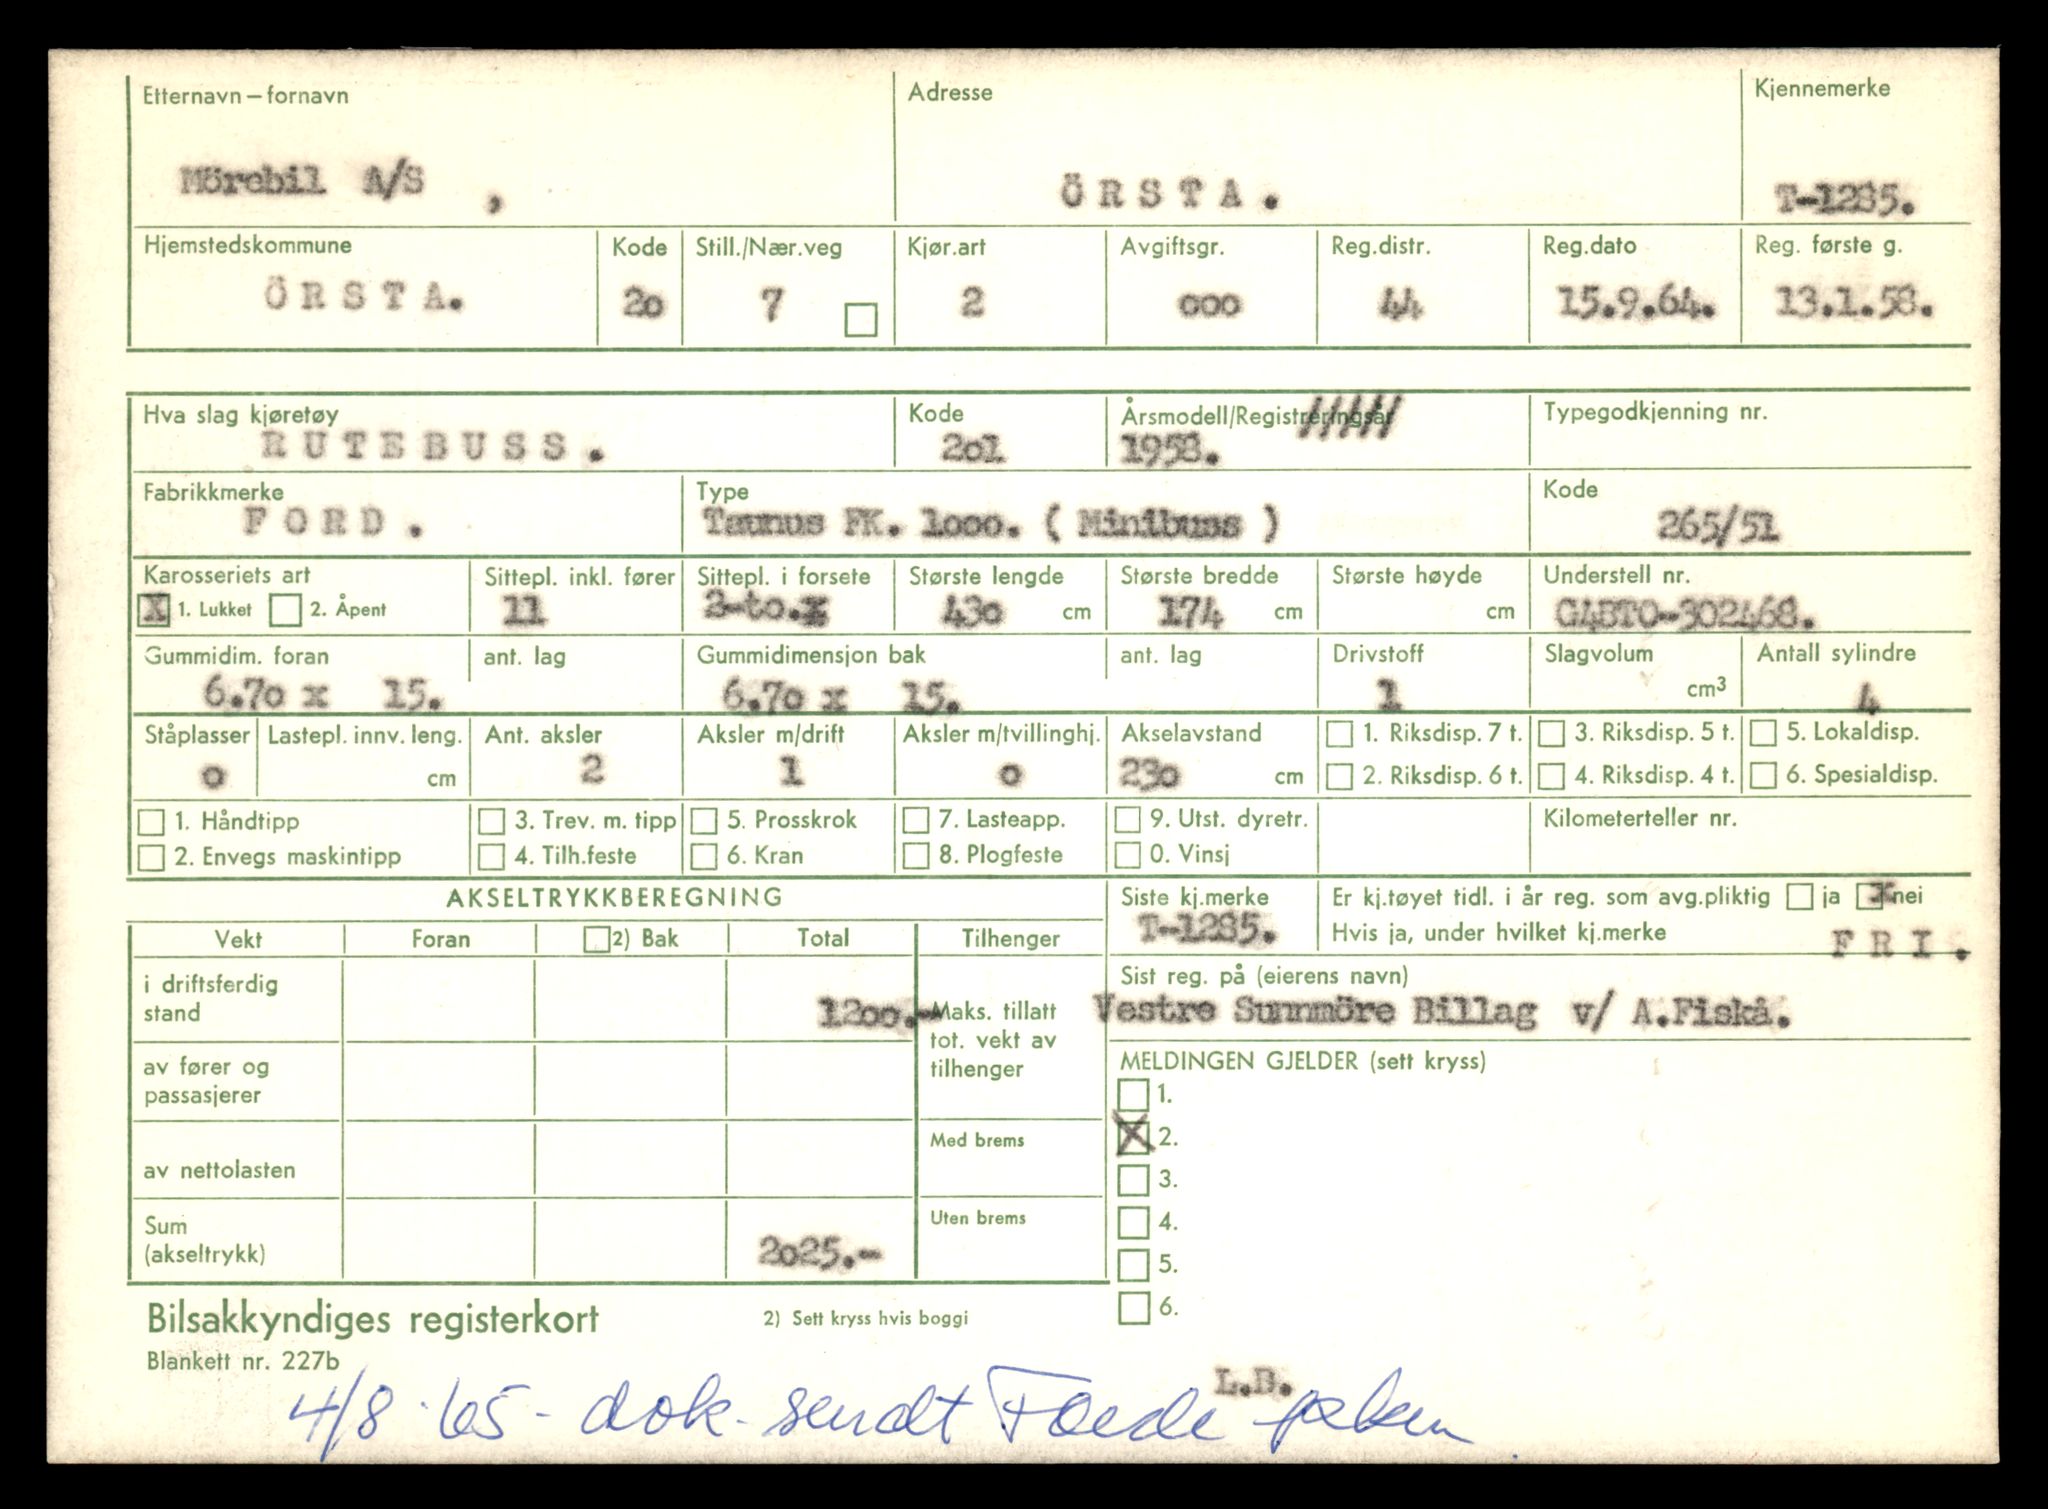 Etternavn – fornavn Adresse Kjennemerke
Mörebil A/S , ÖRSTA. T-1285.
Hjemstedskommune Kode Still./Nær.veg Kjør.art Avgiftsgr. Reg.distr. Reg.dato Reg. første g.
ÖRSTA. 20 7 2 000 44 15.9.64. 13.1.58.
Hva slag kjøretøy Kode Årsmodell/Registreringsår Typegodkjenning nr.
RUTEBUSS. 201 1958.
Fabrikkmerke Type Kode
FORD. Taunus FK. 1000. ( Minibuss ) 265/51
Karosseriets art Sittepl. inkl. fører Sittepl. i forsete Største lengde Største bredde Største høyde Understell nr.
X 1. Lukket 2. Åpent 11 2-to.x 430 cm 174 cm cm G4BTO-302468.
Gummidim. foran ant. lag Gummidimensjon bak ant. lag Drivstoff Slagvolum Antall sylindre
6.70 x 15. 6.70 x 15. 1 cm³ 4
Ståplasser Lastepl. innv. leng. Ant. aksler Aksler m/drift Aksler m/tvillinghj. Akselavstand 1. Riksdisp. 7 t. 3. Riksdisp. 5 t. 5. Lokaldisp.
0 cm 2 1 0 230 cm 2. Riksdisp. 6 t. 4. Riksdisp. 4 t. 6. Spesialdisp.
1. Håndtipp 3. Trev. m. tipp 5. Prosskrok 7. Lasteapp. 9. Utst. dyretr. Kilometerteller nr.
2. Envegs maskintipp 4. Tilh.feste 6. Kran 8. Plogfeste 0. Vinsj
AKSELTRYKKBEREGNING Siste kj.merke Er kj.tøyet tidl. i år reg. som avg.pliktig ja X nei
T-1285. Hvis ja, under hvilket kj.merke FRI.
Vekt Foran 2) Bak Total Tilhenger
Sist reg. på (eierens navn)
Vestre Sunnmöre Billag v/ A.Fiskå.
i driftsferdig stand 1200.- Maks. tillatt tot. vekt av tilhenger
av fører og passasjerer
MELDINGEN GJELDER (sett kryss)
1.
X 2.
3.
4.
5.
6.
av nettolasten Med brems
Sum (akseltrykk) 2025.- Uten brems
Bilsakkyndiges registerkort 2) Sett kryss hvis boggi
Blankett nr. 227b
L.B.
4/8-65 - dok. sendt Førde